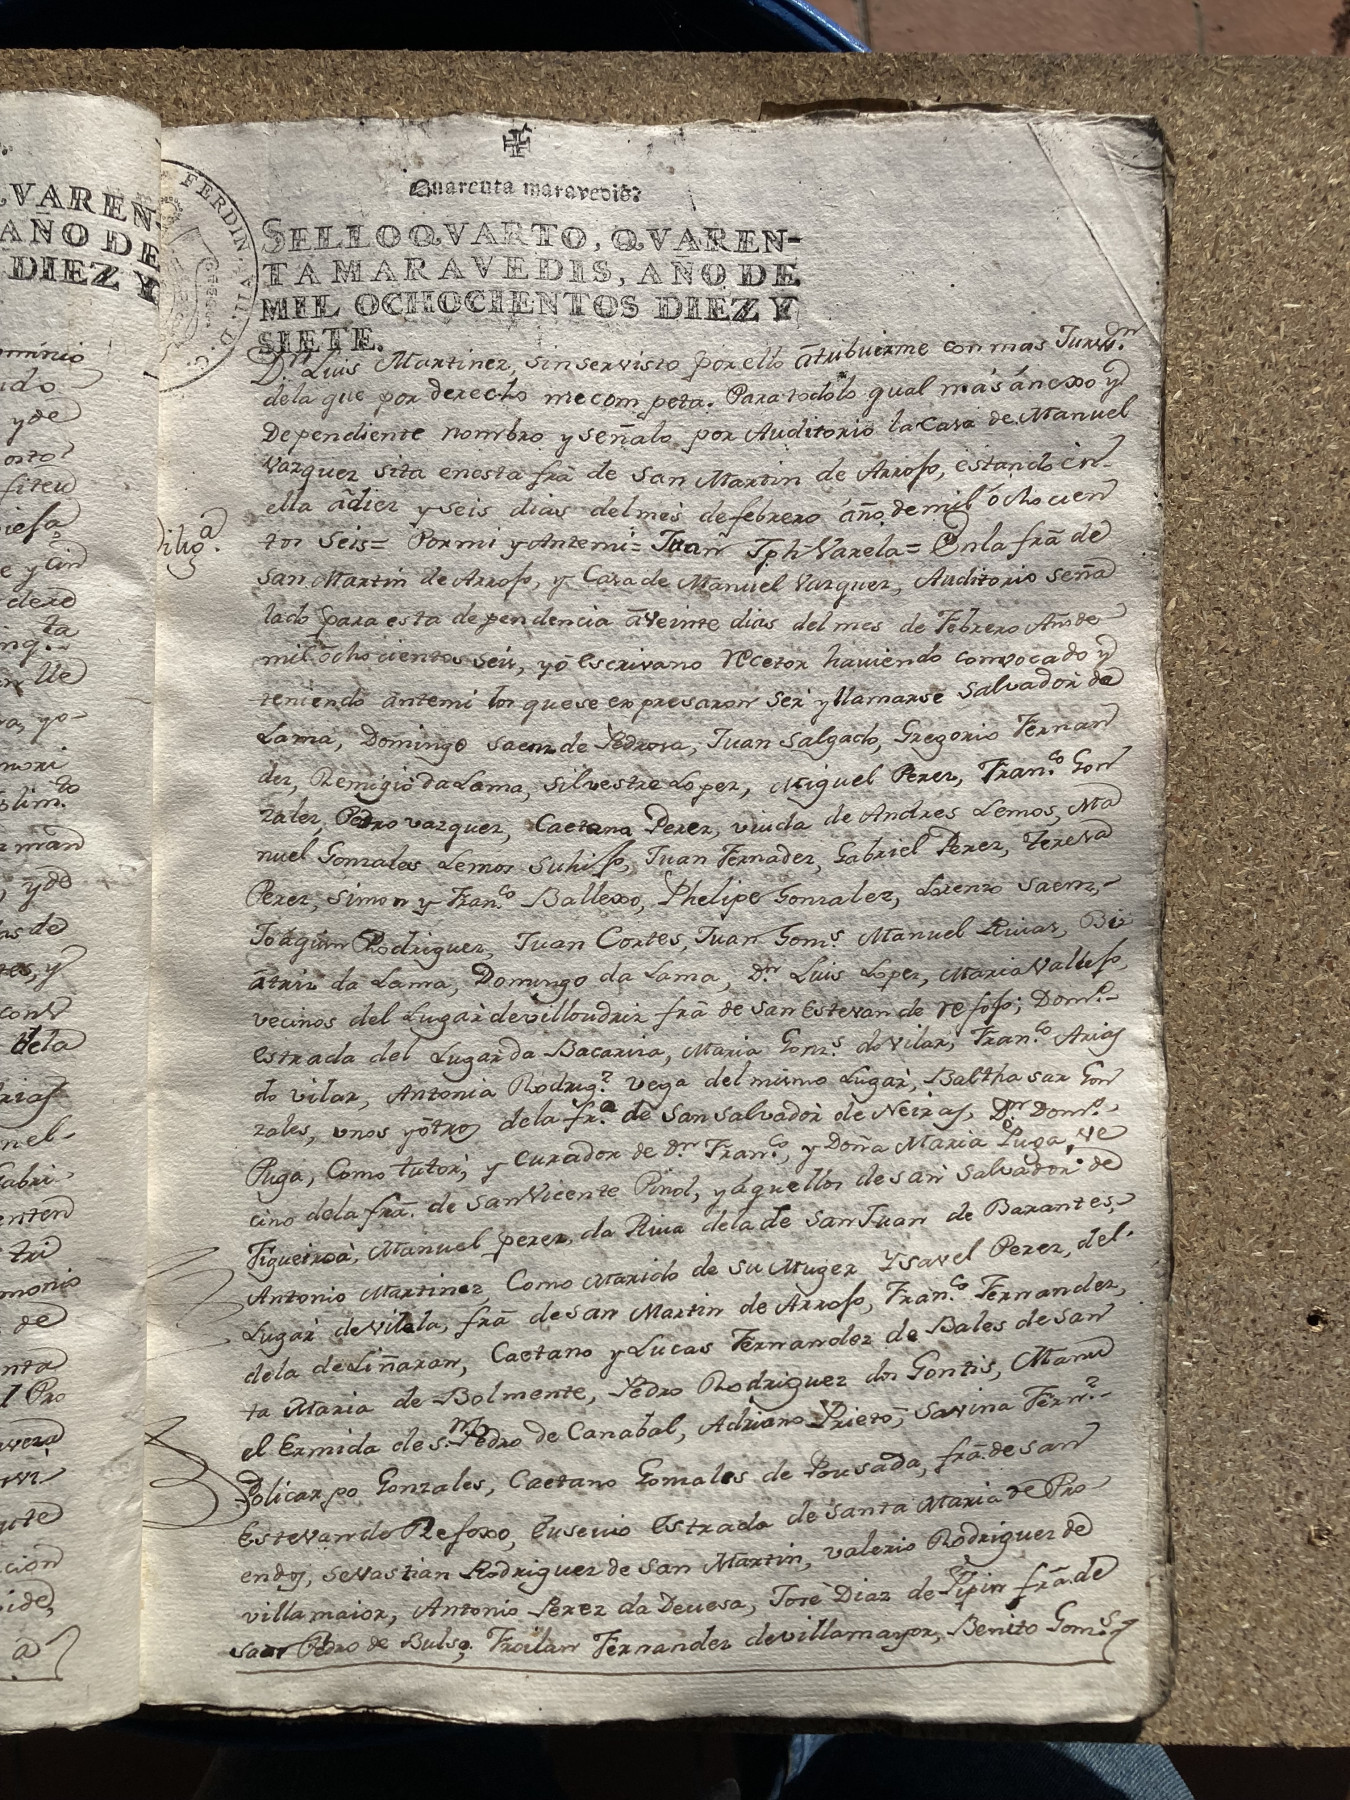 Quarenta maravedis.
SELLO QVARTO, QVAREN-
TA MARAVEDIS, AÑO DE
MIL OCHOCIENTOS DIEZ Y
SIETE.
FERDIN. VII. D. G.
Dn Luis Martinez, sin ser visto por ello átribuirme con mas Jurisdn.
dela que por derecho me com peta. Para todo lo qual más ánexo y
Dependiente nombro y señalo por Auditorio la Casa de Manuel
Vazquez sita enesta frã de San Martin de Arrojo, estando en
ella ã diez y seis dias del mes de febrero áño de mil ócho cien
tos Seis= Por mi y Antemi= Juan Jph Varela= En la frã de
Dilig.a
San Martin de Arrojo, y Casa de Manuel Vazquez, Auditorio seña
lado para esta dependencia ã Veinte dias del mes de Febrero Año de
mil ócho cientos seis, yó Escrivano Recetor haviendo convocado y
teniendo antemi los que se expresaron Ser y llamarse Salvador da
Lama, Domingo Saenz de Pedrosa, Juan Salgado, Gregorio Fernan
dez, Remigio da Lama, Silvestre Lopez, Miguel Perez, Fran.co Gon
zalez, Pedro vazquez, Caetana Perez, viuda de Andres Lemos, Ma
nuel Gonzales Lemos Su hijo, Juan Fernadez, Gabriel Perez, Teresa
Perez, Simon y Fran.co Ballexo, Phelipe Gonzalez, Lorenzo Saenz,
Joaquin Rodriguez, Juan Cortes, Juan Gom.s Manuel Rivas, Bi
átriz da Lama, Domingo da Lama, D.n Luis Lopez, Maria Vallejo,
vecinos del Lugar de villoudriz frã de San Estevan de refojo; Dom.o
Estrada del Lugar da Bacariza, Maria Gonz.s do Vilar, Fran.co Arias
do vilar, Antonia Rodrig.z vega del mismo Lugar, Balthasar Gon
zales, vnos yótros dela fr.a de San Salvador de Neiras, Dn Dom.o
Puga, Como tutor, y curador de D.n Fran.co, y Doña Maria Puga, ve
cino dela frã. de San Vicente Pinol, y áquellos de san Salvador de
Figueiroà, Manuel perez, da Riva dela de San Juan de Barantes,
Antonio Martinez, Como Marido de su Muger Ysavel Perez, del
Lugar de Vilela, frã de san Martin de Arrojo, Fran.co Fernandez,
dela de Liñaran, Caetano y Lucas Fernandez de Bales de San
ta Maria de Bolmente, Pedro Rodriguez dos Gontis, Manu
el Ermida de S.n Pedro de Canabal, Adriano Prieto, Savina Fern.z
Policarpo Gonzales, Caetano Gonzales de Pousada, frã de san
Estevan de Refoxo, Eusevio Estrada de Santa Maria de Pro
endos, Sevastian Rodriguez de San Martin, valerio Rodriguez de
villamaior, Antonio Perez da Devesa, José Diaz de Pipin frã de
san Pedro de Bulso, Froilan Fernandez de villamayor, Benito Gom.s